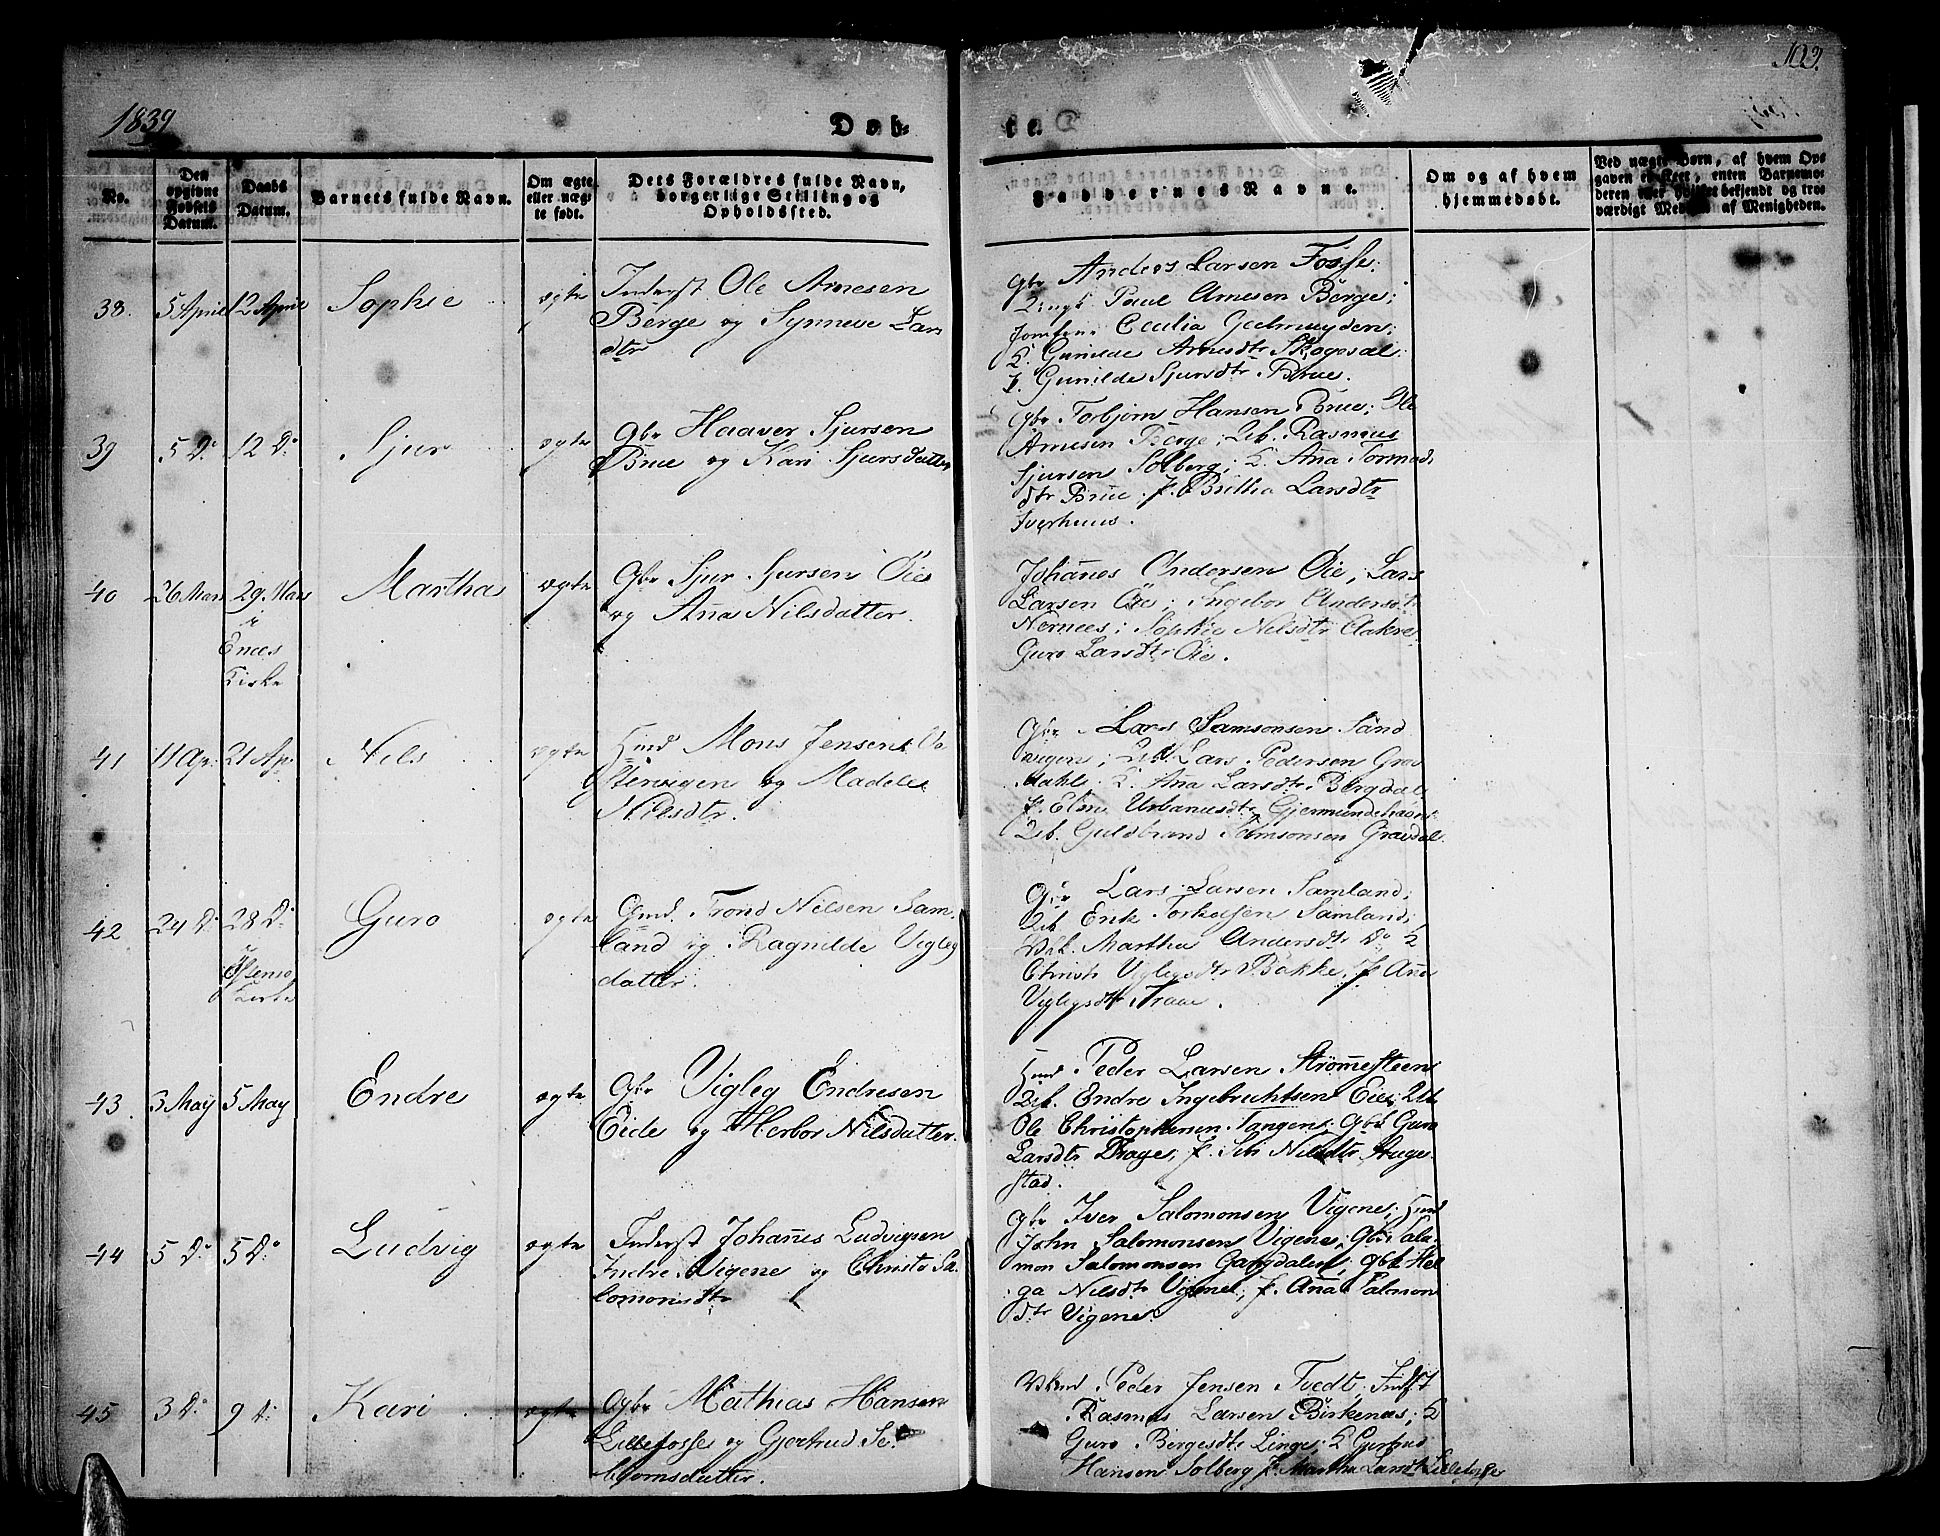 1839
Døb-
te.
103.
No.
Den opgivne Fødsels Datum.
Daabs Datum.
Barnets fulde Navn.
Om ægte eller uægte født.
Dets Forældres fulde Navn, borgerlige Stilling og Opholdssted.
Faddernes Navne.
Om og af hvem hjemmedøbt.
38. 5 April 12 April Sophie ægte
Inderst Ole Arnesen
Berge og Synneve Lars
dtr
Gbr Anders Larsen Fosse;
Ungk Paul Arnesen Berge;
Jomfru Cecilia Geelmuyden;
K. Gunilde Arnesdtr Skogsdal;
P. Gunilde Sjursdtr Brue.
39 5 Do 12 Do Sjur ægte
Gbr Haaver Sjursen
Brue og Kari Sjursdatter
Gbr Torbjørn Hansen Brue; Ole
Arnesen Berge; Ub. Rasmus
Sjursen Solberg; K. Ana Tormod
dtr Brue. P. Britha Larsdtr
Iverhuus.
40 26 Mars 29 Mars i Enæs Kirke Martha ægte
Gbr Sjur Sjursen Øie
og Ana Nilsdatter.
Johanes Andersen Øie; Lars
Larsen Øie; Ingebor Andersdtr
Nernæs; Sophie Nilsdtr Aakre
Guro Larsdtr Øie.
41 11 Ap: 21 Ap. Nils ægte
Hmd Mons Jensen
Østervigen og Madele
Nilsdtr.
Gbr Lars Samsonsen Sand
vigen; Ub. Lars Pedersen Grav
dahl K. Ana Larsdtr Bergdal
P. Elen Urbanusdtr Gjermundshavn
Ub. Guldbrand Samsonsen Gravdal.
42 24 Do 28 Do i Østensø Kirke Guro ægte
Gmd. Trond Nilsen Sam
land og Ragnilde Vigleg
datter.
Gbr Lars Larsen Samland;
Ub Erik Torkelsen Samland;
Martha Andersdtr Do; K
Christi Viglegsdtr Bakke, P Ana
Viglegsdtr Traae.
43. 3 May 5 May Endre ægte
Gbr Vigleg Endresen
Eide og Herbor Nilsdatter.
Hmd Peder Larsen Strømesteen
Ub. Endre Ingebrichtsen Eide; Ub
Ole Christophersen Tangen; Gbk Guro
Larsdtr Drage; P. Siri Nilsdtr Auge
stad.
44 5 Do 5 Do Ludvig ægte
Inderst Johanes Ludvigsen
Indre Vigene og Christi Sa
lomonsdtr
Gbr Iver Salomonsen Vigene; Hmd
John Salomonsen Vigene; Gbr Salo
mon Salomonsen Gangdalen; Gbk Hel
ga Nilsdtr Vigene; P. Ana Salomon
dtr Vigene.
45 3 Do 9 Do Kari ægte
Gbr Mathias Hansen
Lillefosse og Gjertrud Se
biornsdatter.
Peder Jensen Tvedt; Indst
Rasmus Larsen Birkenæs; K
Guro Børgesdtr Linge; K Gertrud
Hansen Solberg P. Martha Larsdtr Lillefosse